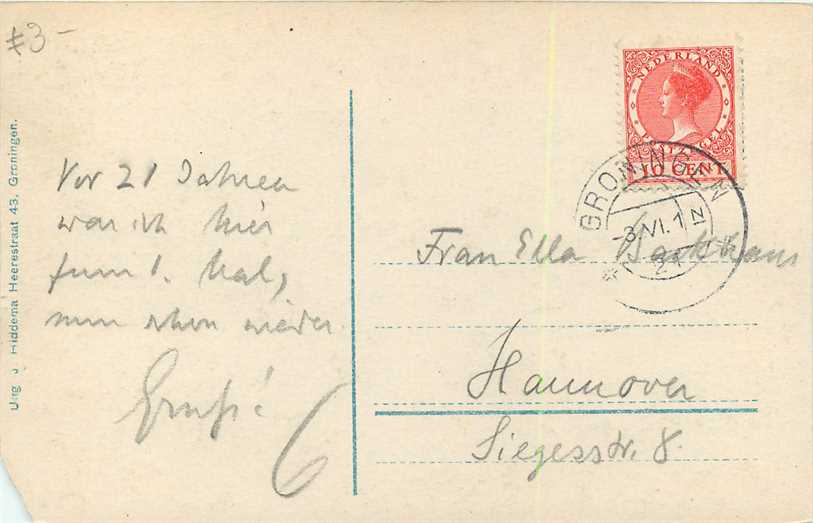 #3-
NEDERLAND
POSTZEGEL
10 CENT
GRONINGEN
-3.VI.1 N
Vor 21 Jahren
war ich hier
zum 1. Mal,
nun schon wieder.
Gruß!
Frau Ella Backhaus
Hannover
Siegesstr. 8.
Uitg J Hiddema Heerestraat 43, Groningen.